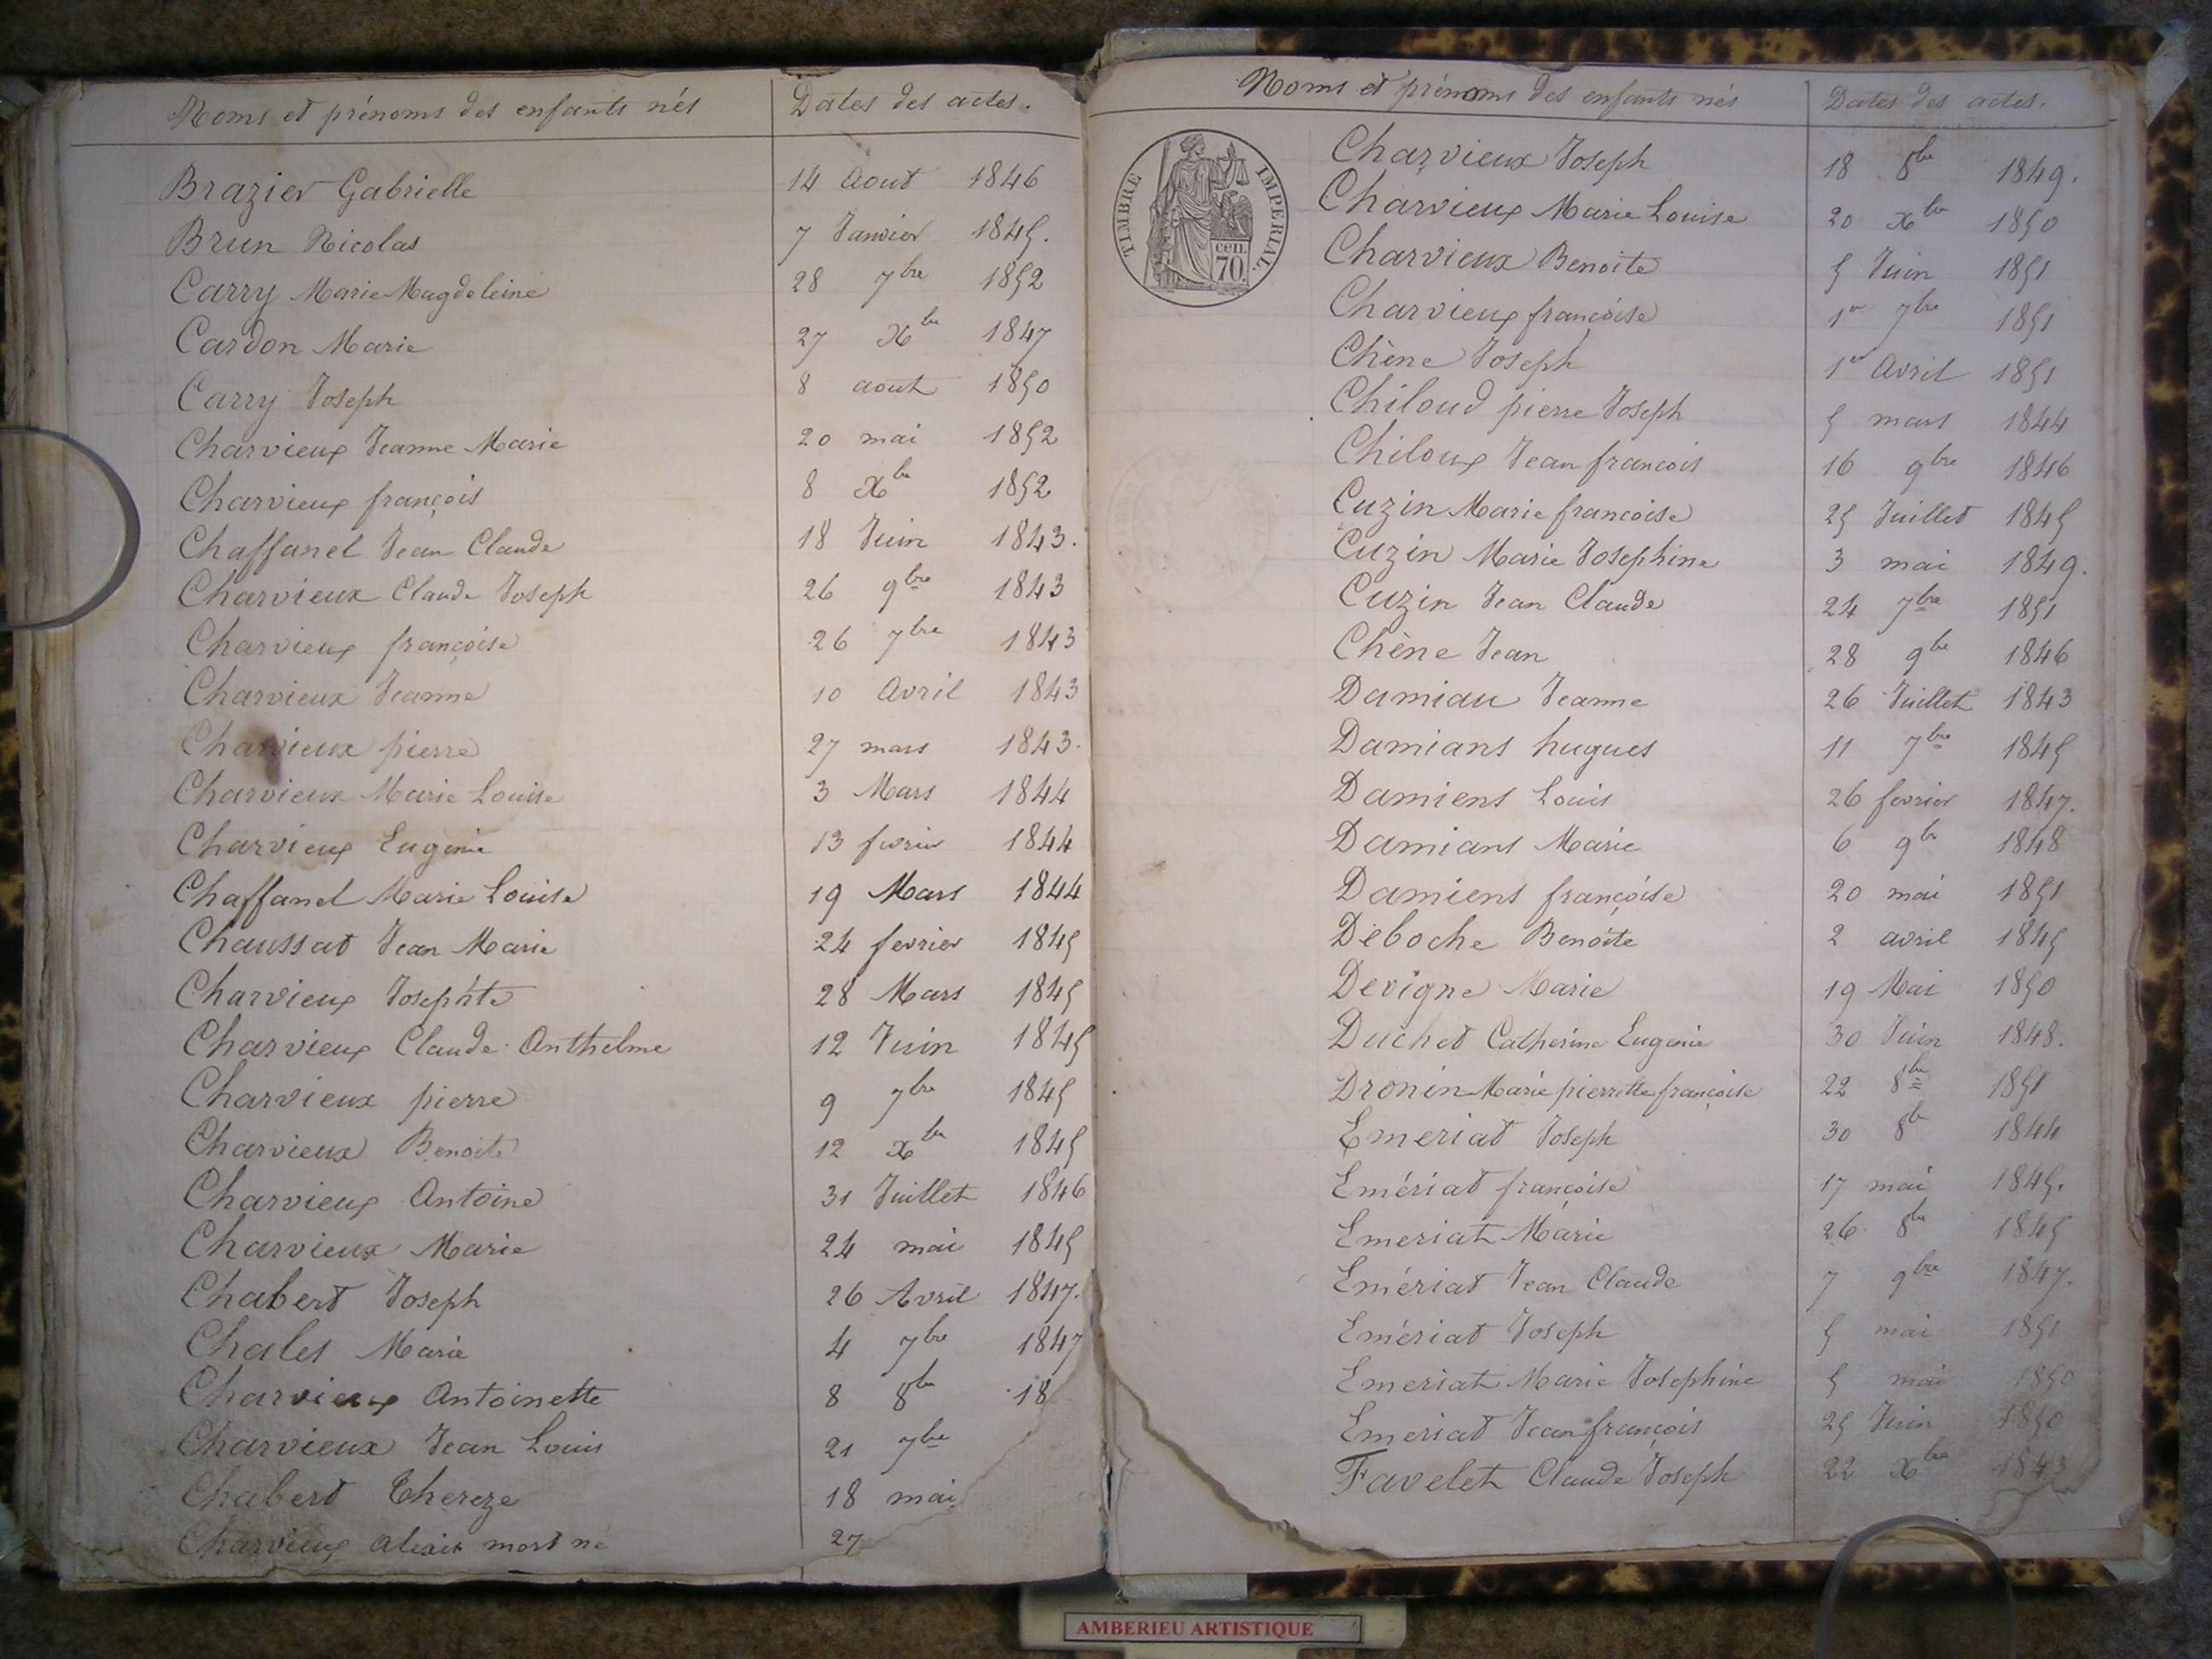 Noms et prénoms des enfants nés Dates des actes.
Brazier Gabrielle 14 Aout 1846
Brun Nicolas 7 Janvier 1845.
Carry Marie Magdeleine 28 7bre 1852
Cardon Marie 27 Xbre 1847
Carry Joseph 8 aout 1850
Charvieux Jeanne Marie 20 mai 1852
Charvieux françois 8 Xbre 1852
Chaffanel Jean Claude 18 Juin 1843.
Charvieux Claude Joseph 26 9bre 1843
Charvieux françoise 26 7bre 1843
Charvieux Jeanne 10 Avril 1843
Charvieux pierre 27 mars 1843.
Charvieux Marie Louise 3 Mars 1844
Charvieux Eugenie 13 fevrier 1844
Chaffanel Marie Louise 19 Mars 1844
Chaussat Jean Marie 24 fevrier 1845
Charvieux Josephte 28 Mars 1845
Charvieux Claude Anthelme 12 Juin 1845
Charvieux pierre 9 7bre 1845
Charvieux Benoite 12 xbre 1845
Charvieux Antoine 31 Juillet 1846
Charvieux Marie 24 mai 1845
Chabert Joseph 26 Avril 1847.
Chales Marie 4 7bre 1847
Charvieux Antoinette 8 8bre 18
Charvieux Jean Louis 21 7bre
Chabert Thereze 18 mai
Charvieux alexis mort né 27
Noms et prénoms des enfants nés Dates des actes.
TIMBRE IMPERIAL.
cen.
70
Charvieux Joseph 18 8bre 1849.
Charvieux Marie Louise 20 Xbre 1850
Charvieux Benoite 5 Juin 1851
Charvieux françoise 1er 7bre 1851
Chène Joseph 1er Avril 1851
Chiloud pierre Joseph 5 mars 1844
Chiloux Jean francois 16 9bre 1846
Cuzin Marie francoise 25 Juillet 1845
Cuzin Marie Josephine 3 mai 1849.
Cuzin Jean Claude 24 7bre 1851
Chène Jean 28 9bre 1846
Damiau Jeanne 26 Juillet 1843
Damians hugues 11 7bre 1845
Damiens Louis 26 fevrier 1847.
Damians Marie 6 9bre 1848
Damiens françoise 20 mai 1851
Déboche Benoite 2 avril 1845
Devigne Marie 19 Mai 1850
Duchet Catherine Eugenie 30 Juin 1848.
Dronin Marie pierrette françoise 22 8bre 1851
Emeriat Joseph 30 8bre 1844
Emériat françoise 17 mai 1845.
Emeriat Marie 26 8bre 1845
Emériat Jean Claude 7 9bre 1847.
Emériat Joseph 5 mai 1851
Emeriat Marie Josephine 5 mai 1850
Emeriat Jean françois 25 Juin 1850
Favelet Claude Joseph 22 Xbre 1843
AMBERIEU ARTISTIQUE